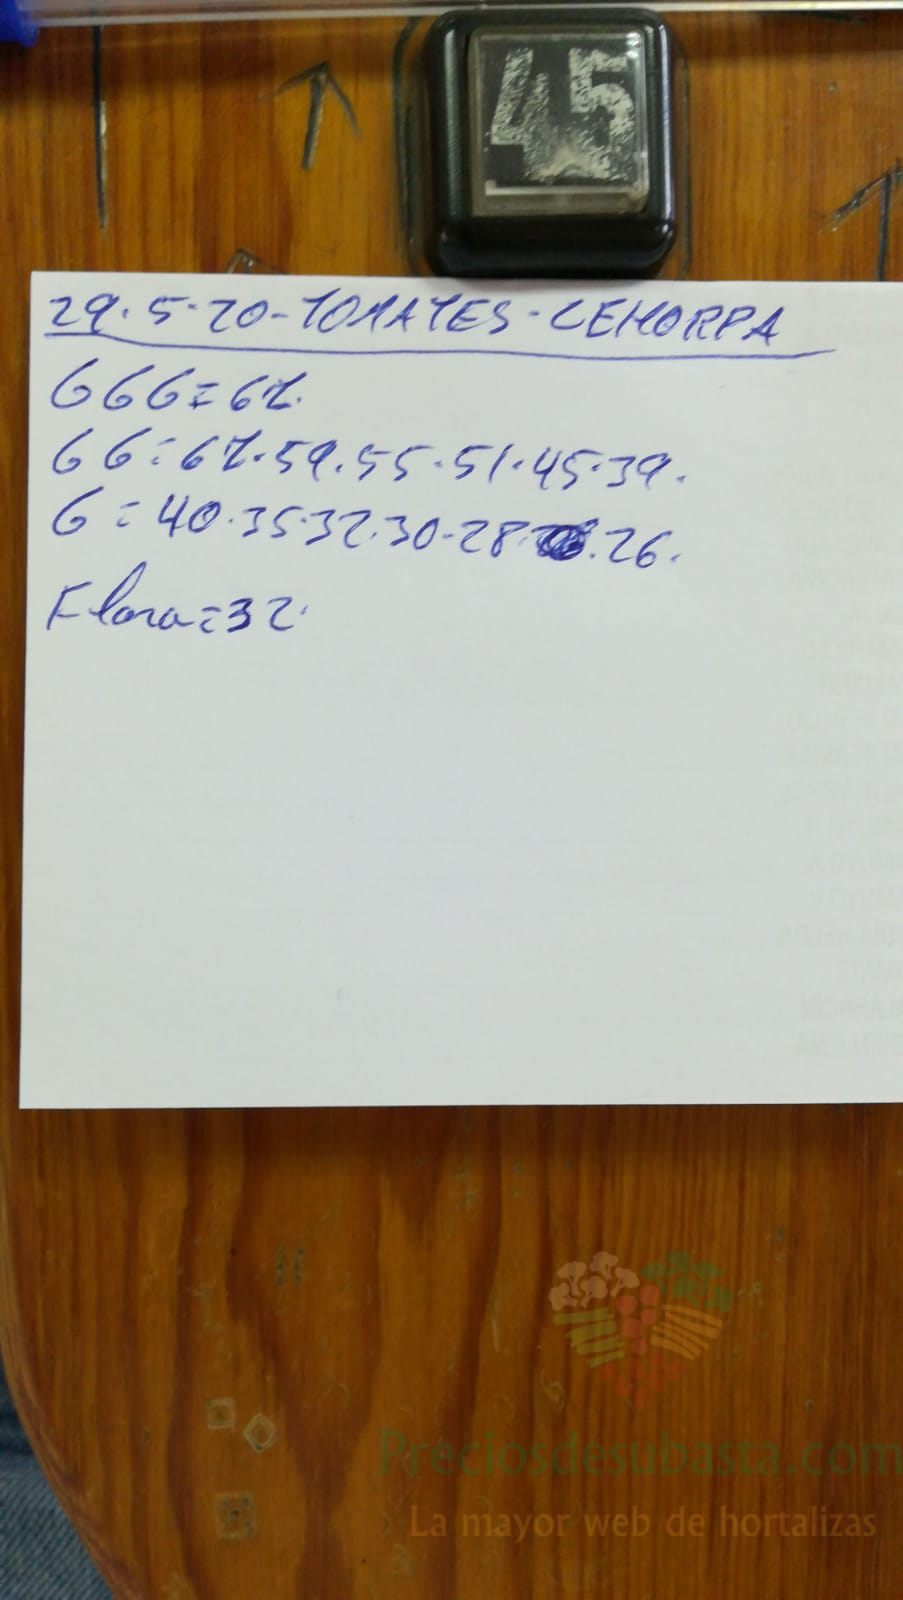 45
29.5.20-TOMATES-CEHORPA
GGG=62.
GG=62.59.55.51.45.39.
G=40.35.32.30.28. .26.
Flora=32.
Preciosdesubasta.com
La mayor web de hortalizas